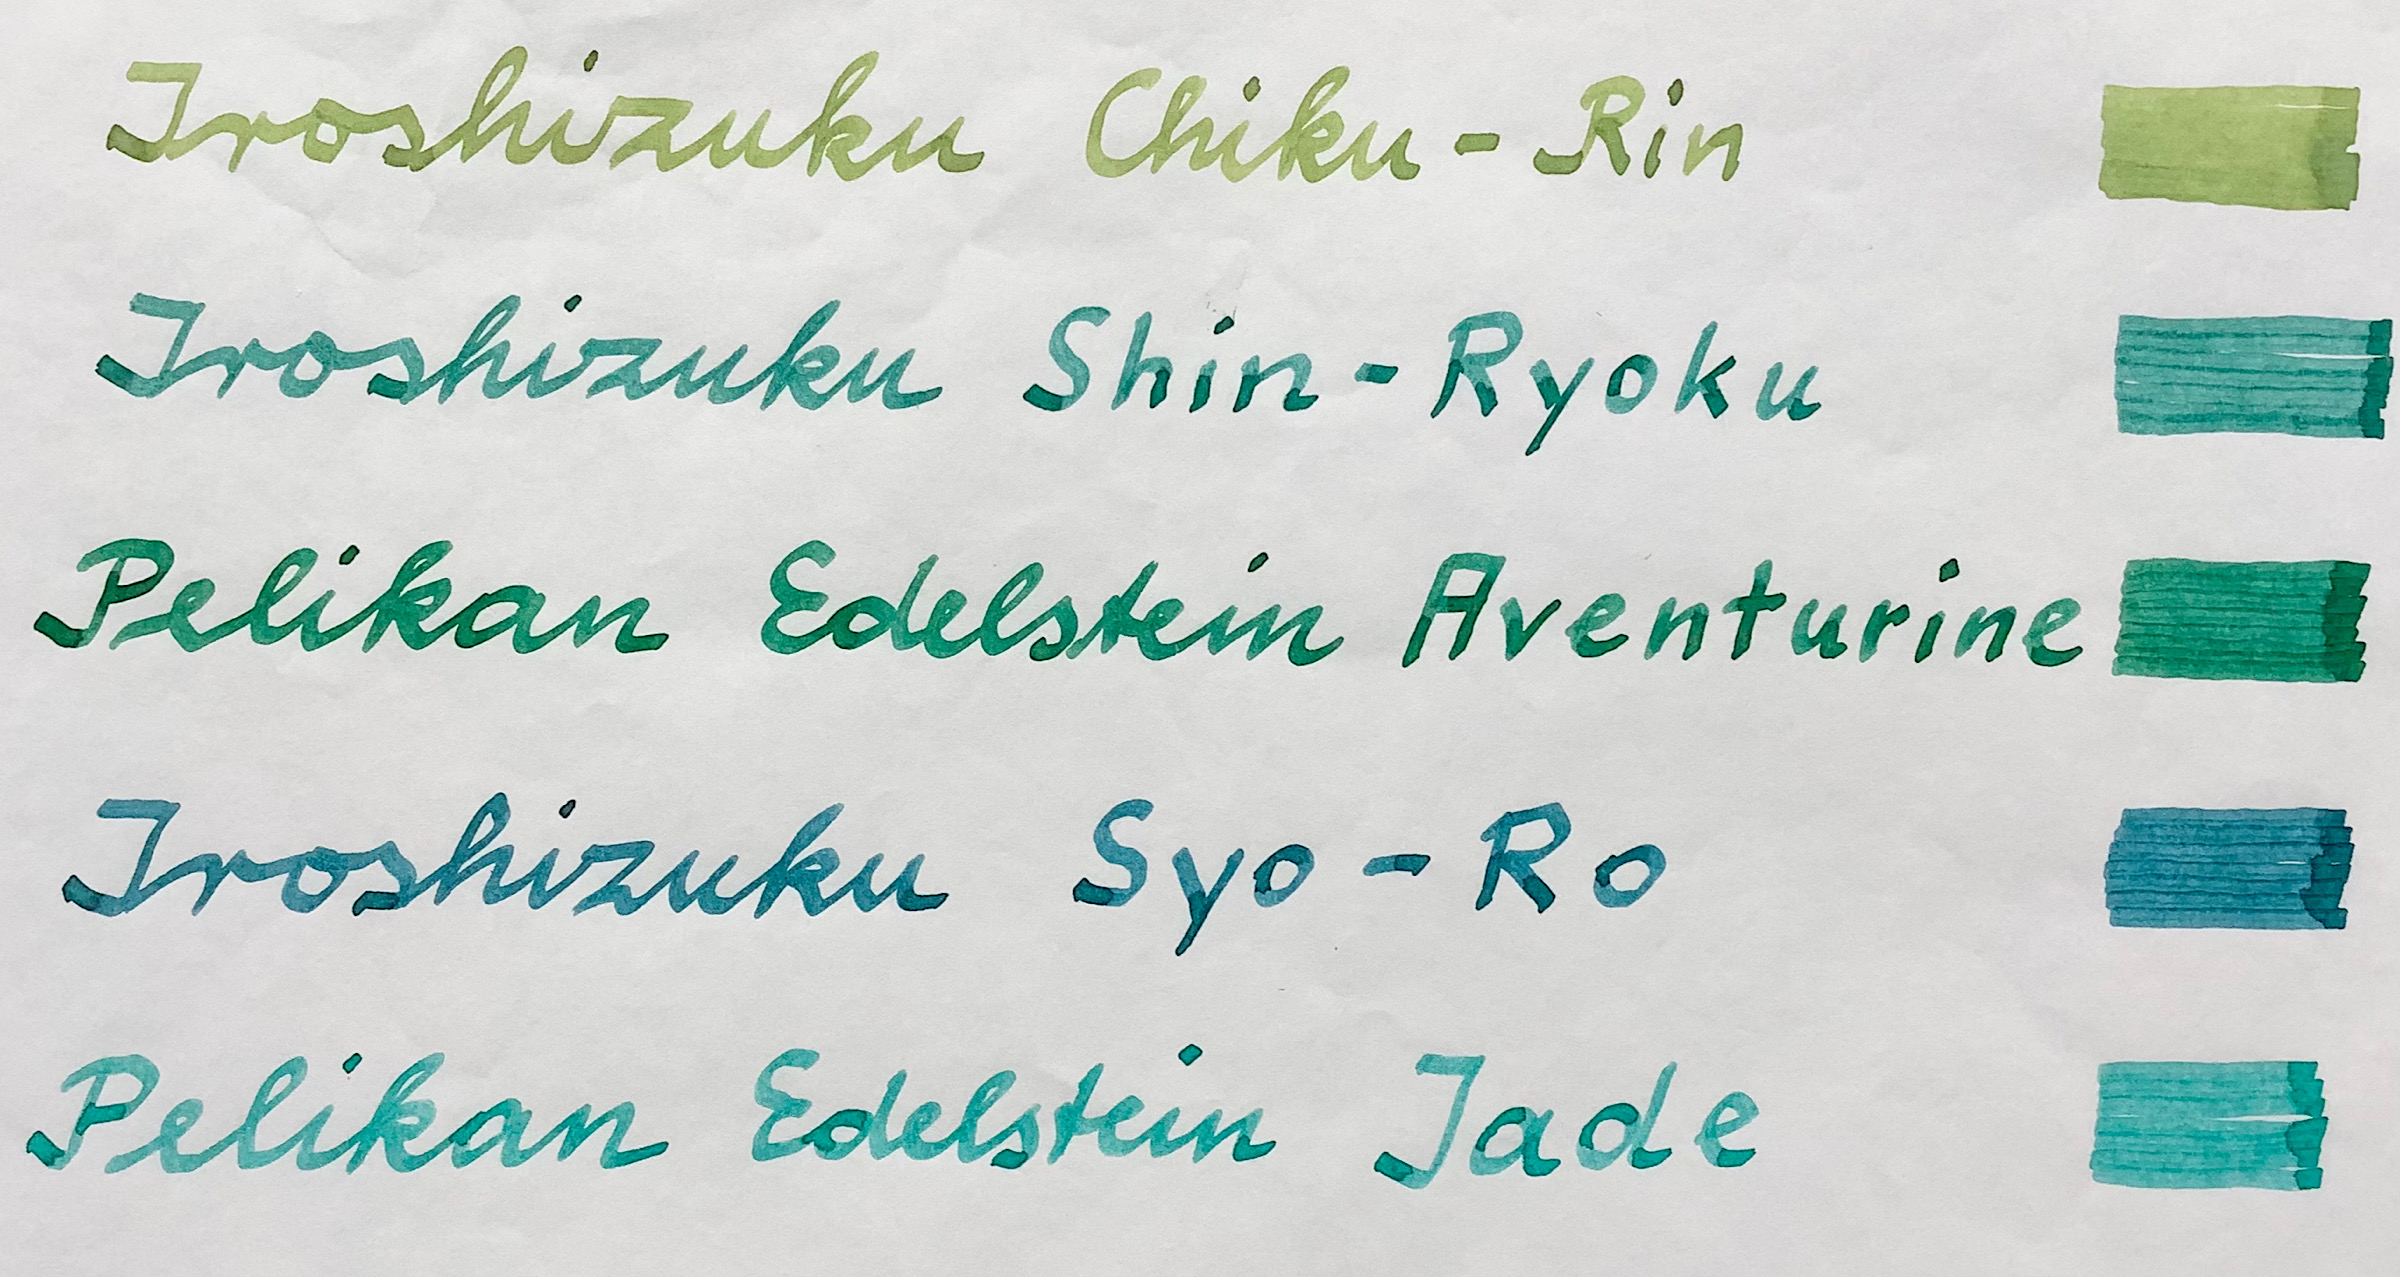 Iroshizuku Chiku-Rin
Iroshizuku Shin-Ryoku
Pelikan Edelstein Aventurine
Iroshizuku Syo-Ro
Pelikan Edelstein Jade